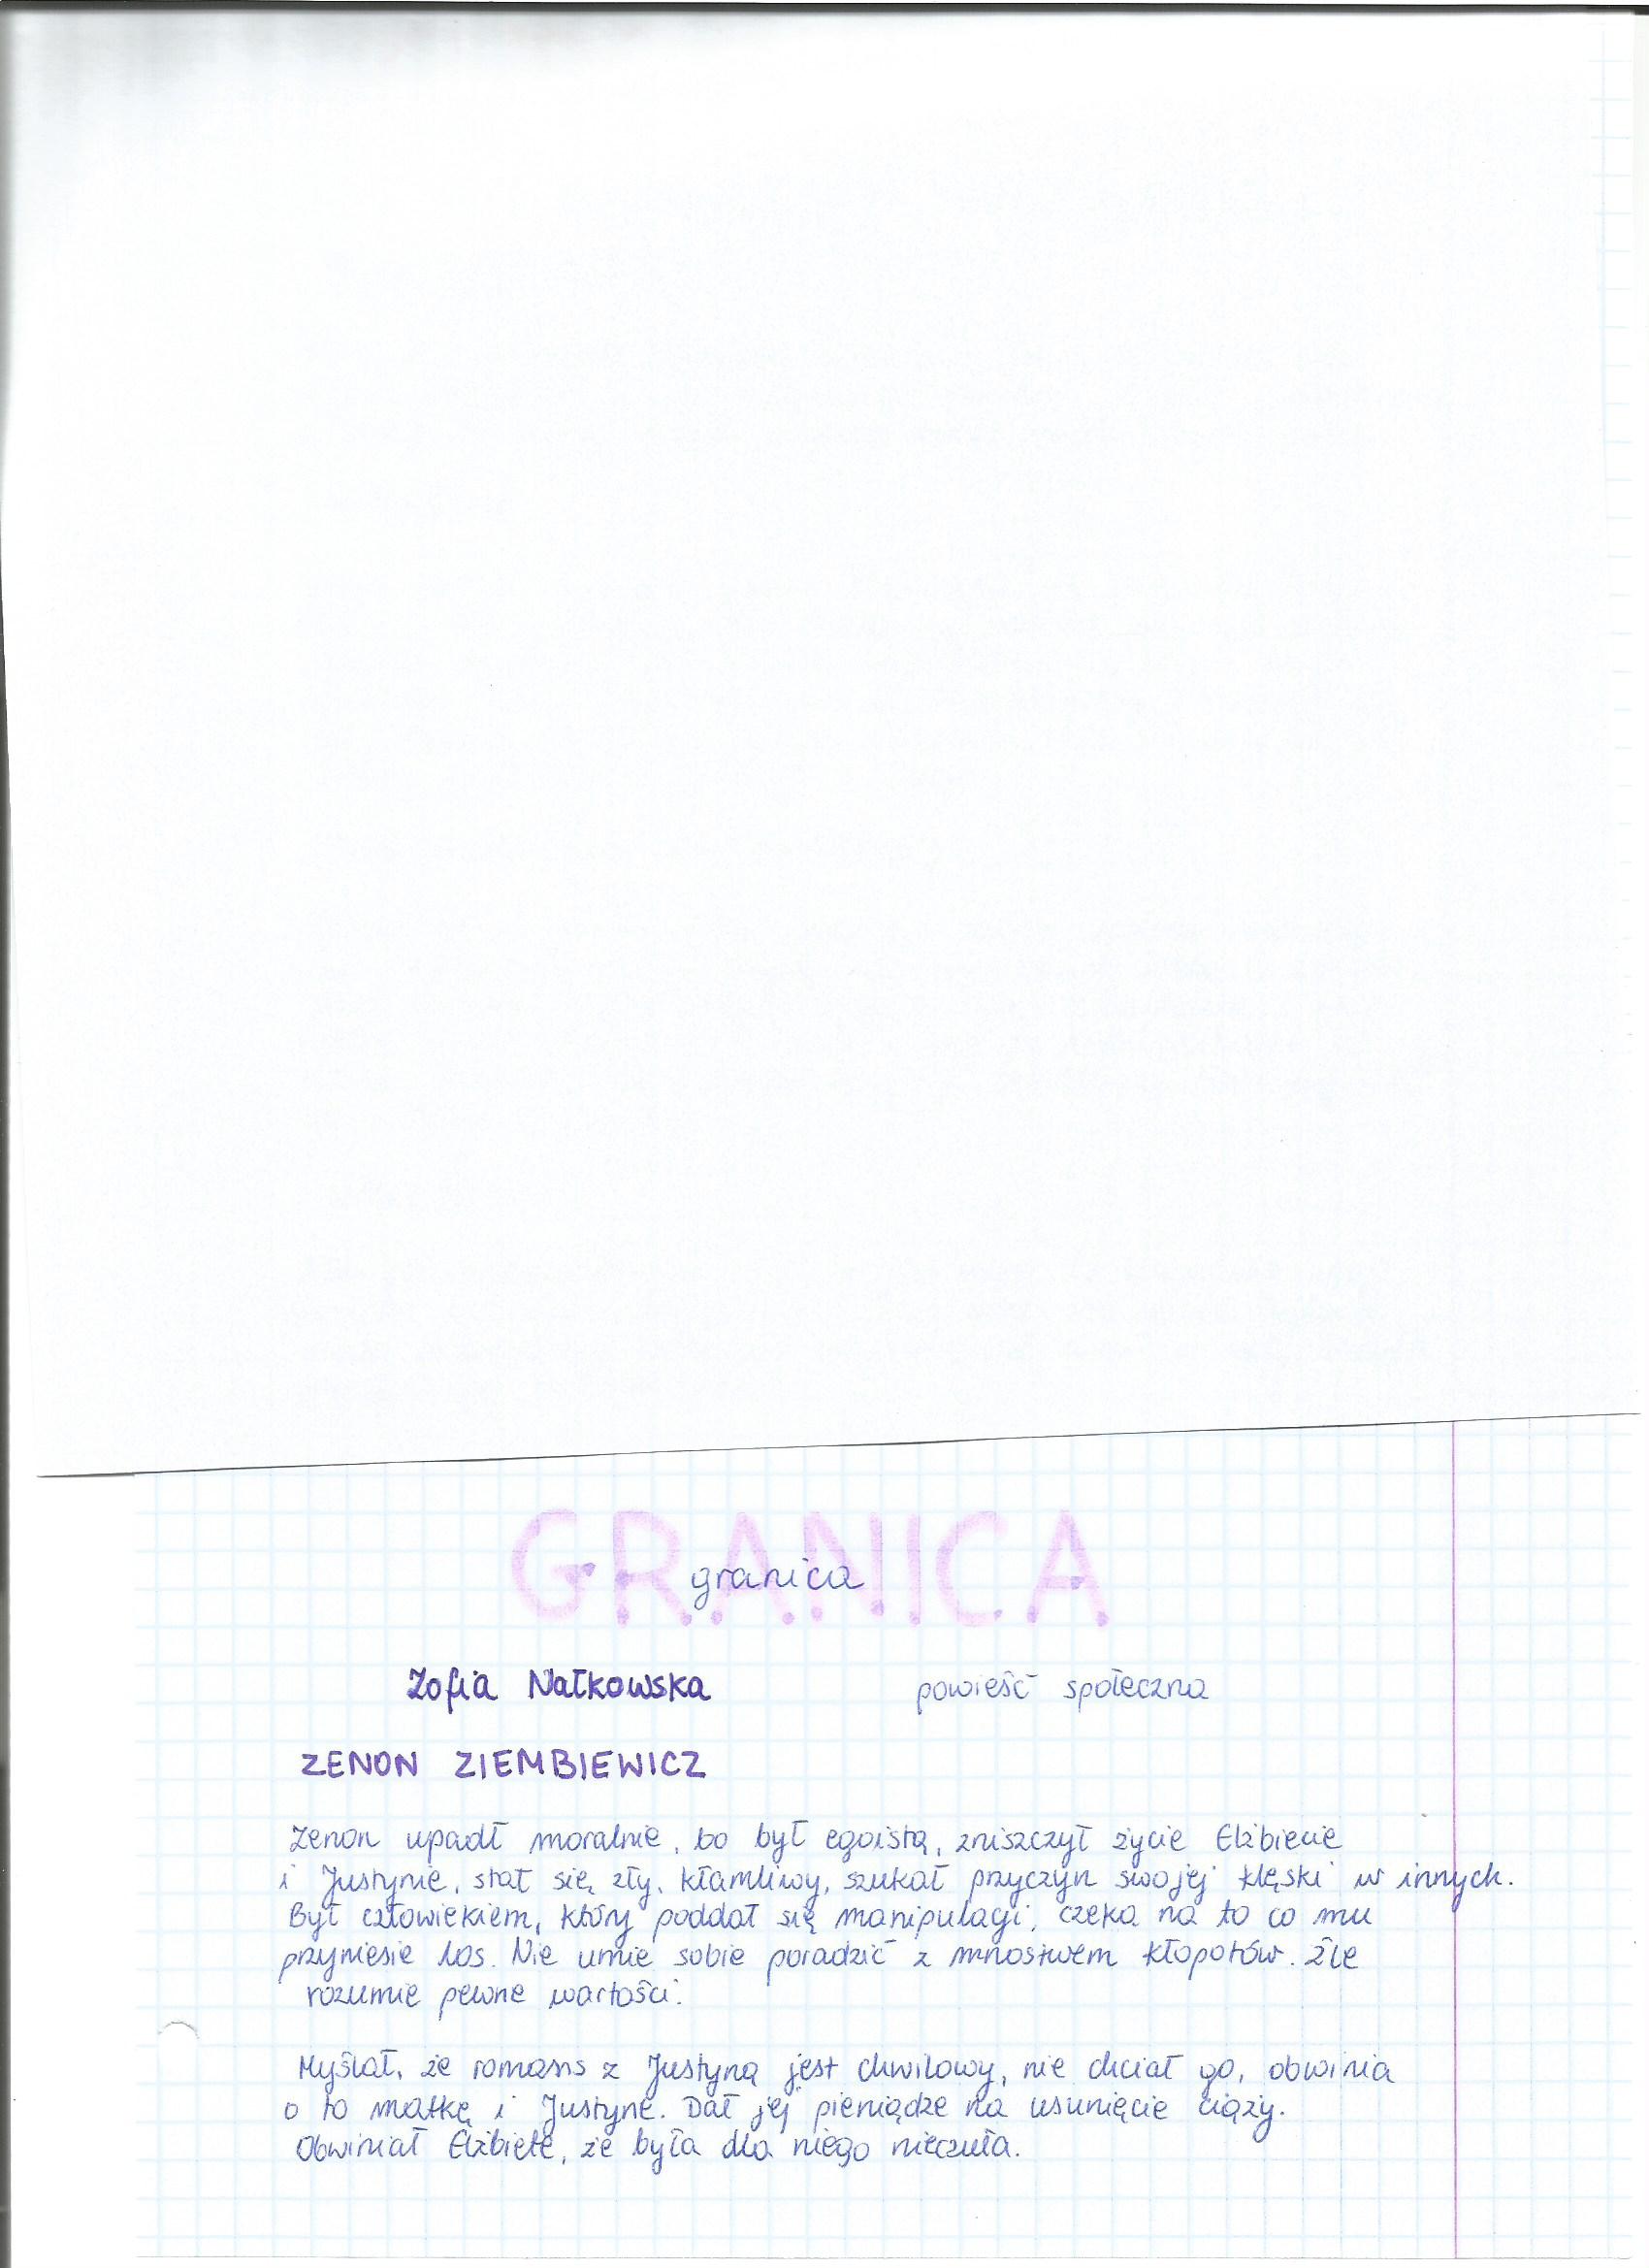 GRANICA
granica
Zofia Nałkowska powieść społeczna
ZENON ZIEMBIEWICZ
Zenon upadł moralnie, bo był egoistą, zniszczył życie Elżbiecie
i Justynie, stał się zły, kłamliwy, szukał przyczyn swojej klęski w innych.
Był człowiekiem, który poddał się manipulacji, czeka na to co mu
przyniesie los. Nie umie sobie poradzić z mnóstwem kłopotów. Źle
rozumie pewne wartości.
Myślał, że romans z Justyną jest chwilowy, nie chciał go, obwinia
o to matkę i Justynę. Dał jej pieniądze na usunięcie ciąży.
Obwiniał Elżbietę, że była dla niego nieczuła.